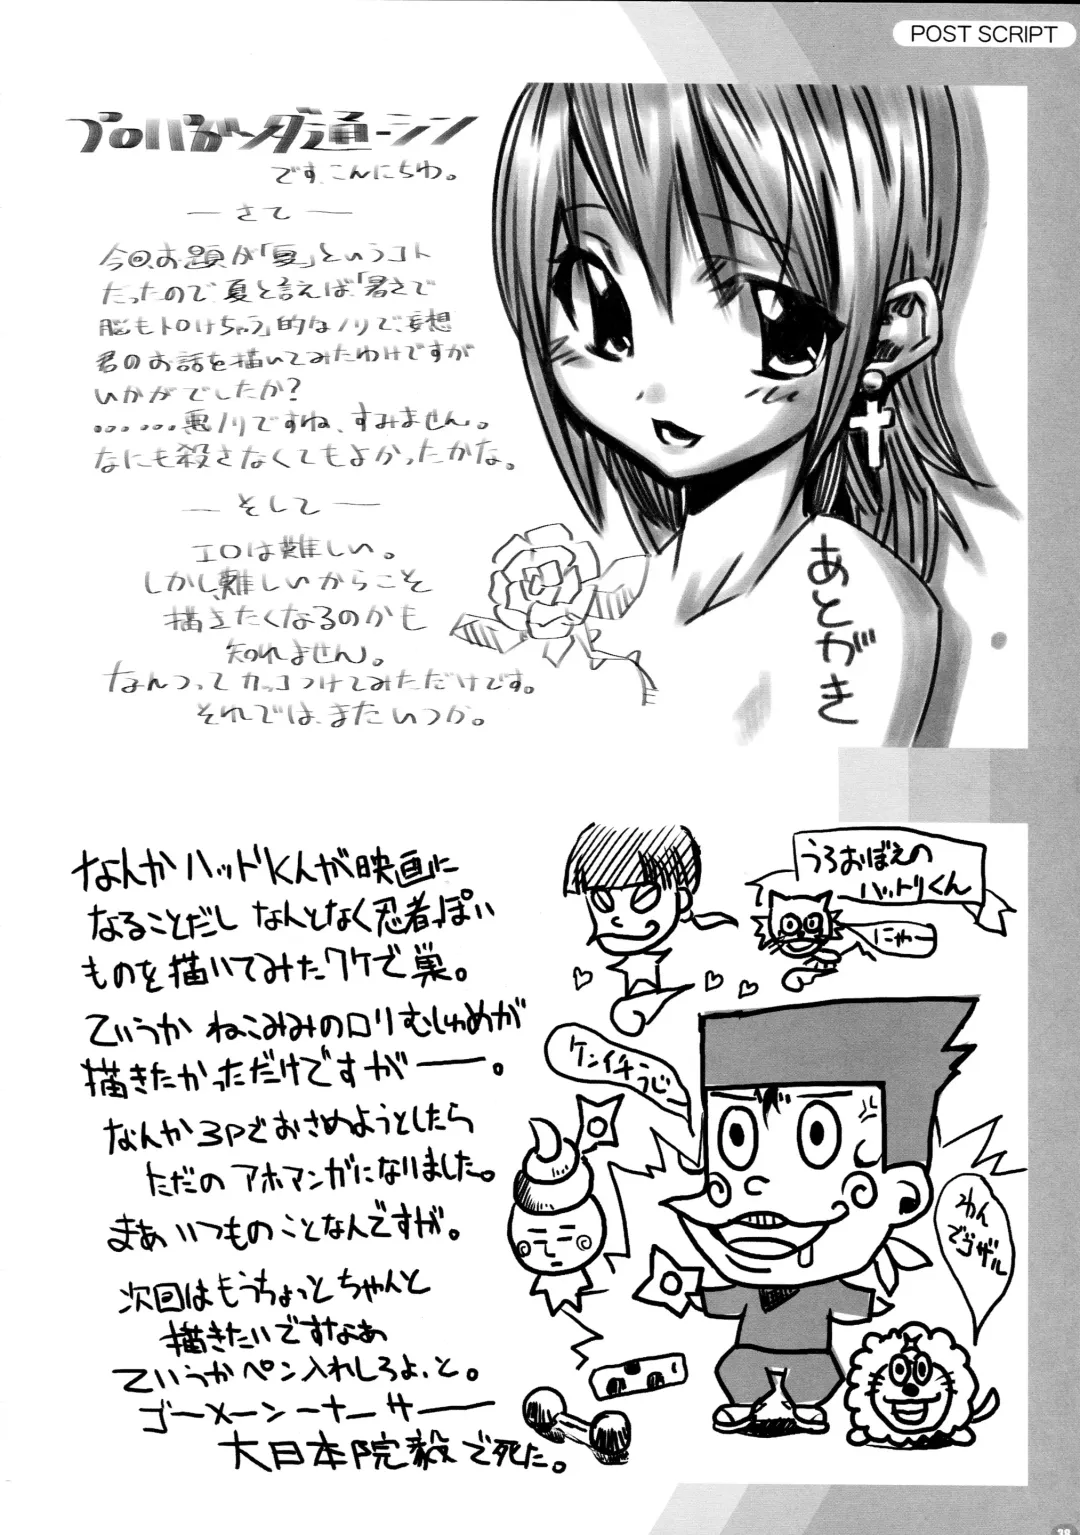 POST SCRIPT
プロパガンダ通ーシン
です、こんにちわ。
― さて ―
今回、お題が「夏」というコト
だったので、夏と言えば、「暑さで
脳もトロけちゃう」的なノリで、妄想
君のお話を描いてみたわけですが
いかがでしたか？
……悪ノリですね、すみません。
なにも殺さなくてもよかったかな。
― そして ―
エロは難しい。
しかし、難しいからこそ
描きたくなるのかも
知れません。
なんつってカッコつけてみただけです。
それでは、またいつか。
あとがき
なんかハットドKくんが映画に
なることだし なんとなく忍者っぽい
ものを描いてみたワケで巣。
ていうか ねこみみのロリむしゅめが
描きたかっただけですがー。
なんか3Pでおさめようとしたら
ただの アホマンガになりました。
まぁ いつものことなんですが。
次回はもうちょっとちゃんと
描きたいですなぁ
ていうかペン入れしろよ、と。
ゴーメーンーナーサー
大日本院毅で死た。
うろおぼえの
ハットリくん
にゃー
ケンイチうじー
わん
でゴザル
38